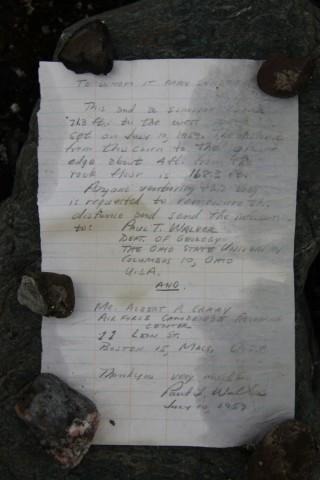 To whom it may concern:
This and a similar cairn
to the west were
set on July 10, 1959. The distance
from this cairn to the glacier
edge about 4 ft. from the
rock floor is 168.3 ft.
Anyone venturing this way
is requested to remeasure this
distance and send the
to: Paul T. Walker
Dept. of Geology
The Ohio State University
Columbus 10, Ohio
U.S.A.
AND
Mr. Albert P. Crary
Air Force Cambridge Research
Center
Leon St.
Boston 15, Mass. U.S.A.
Thank you very much.
Paul T. Walker
July 10, 1959